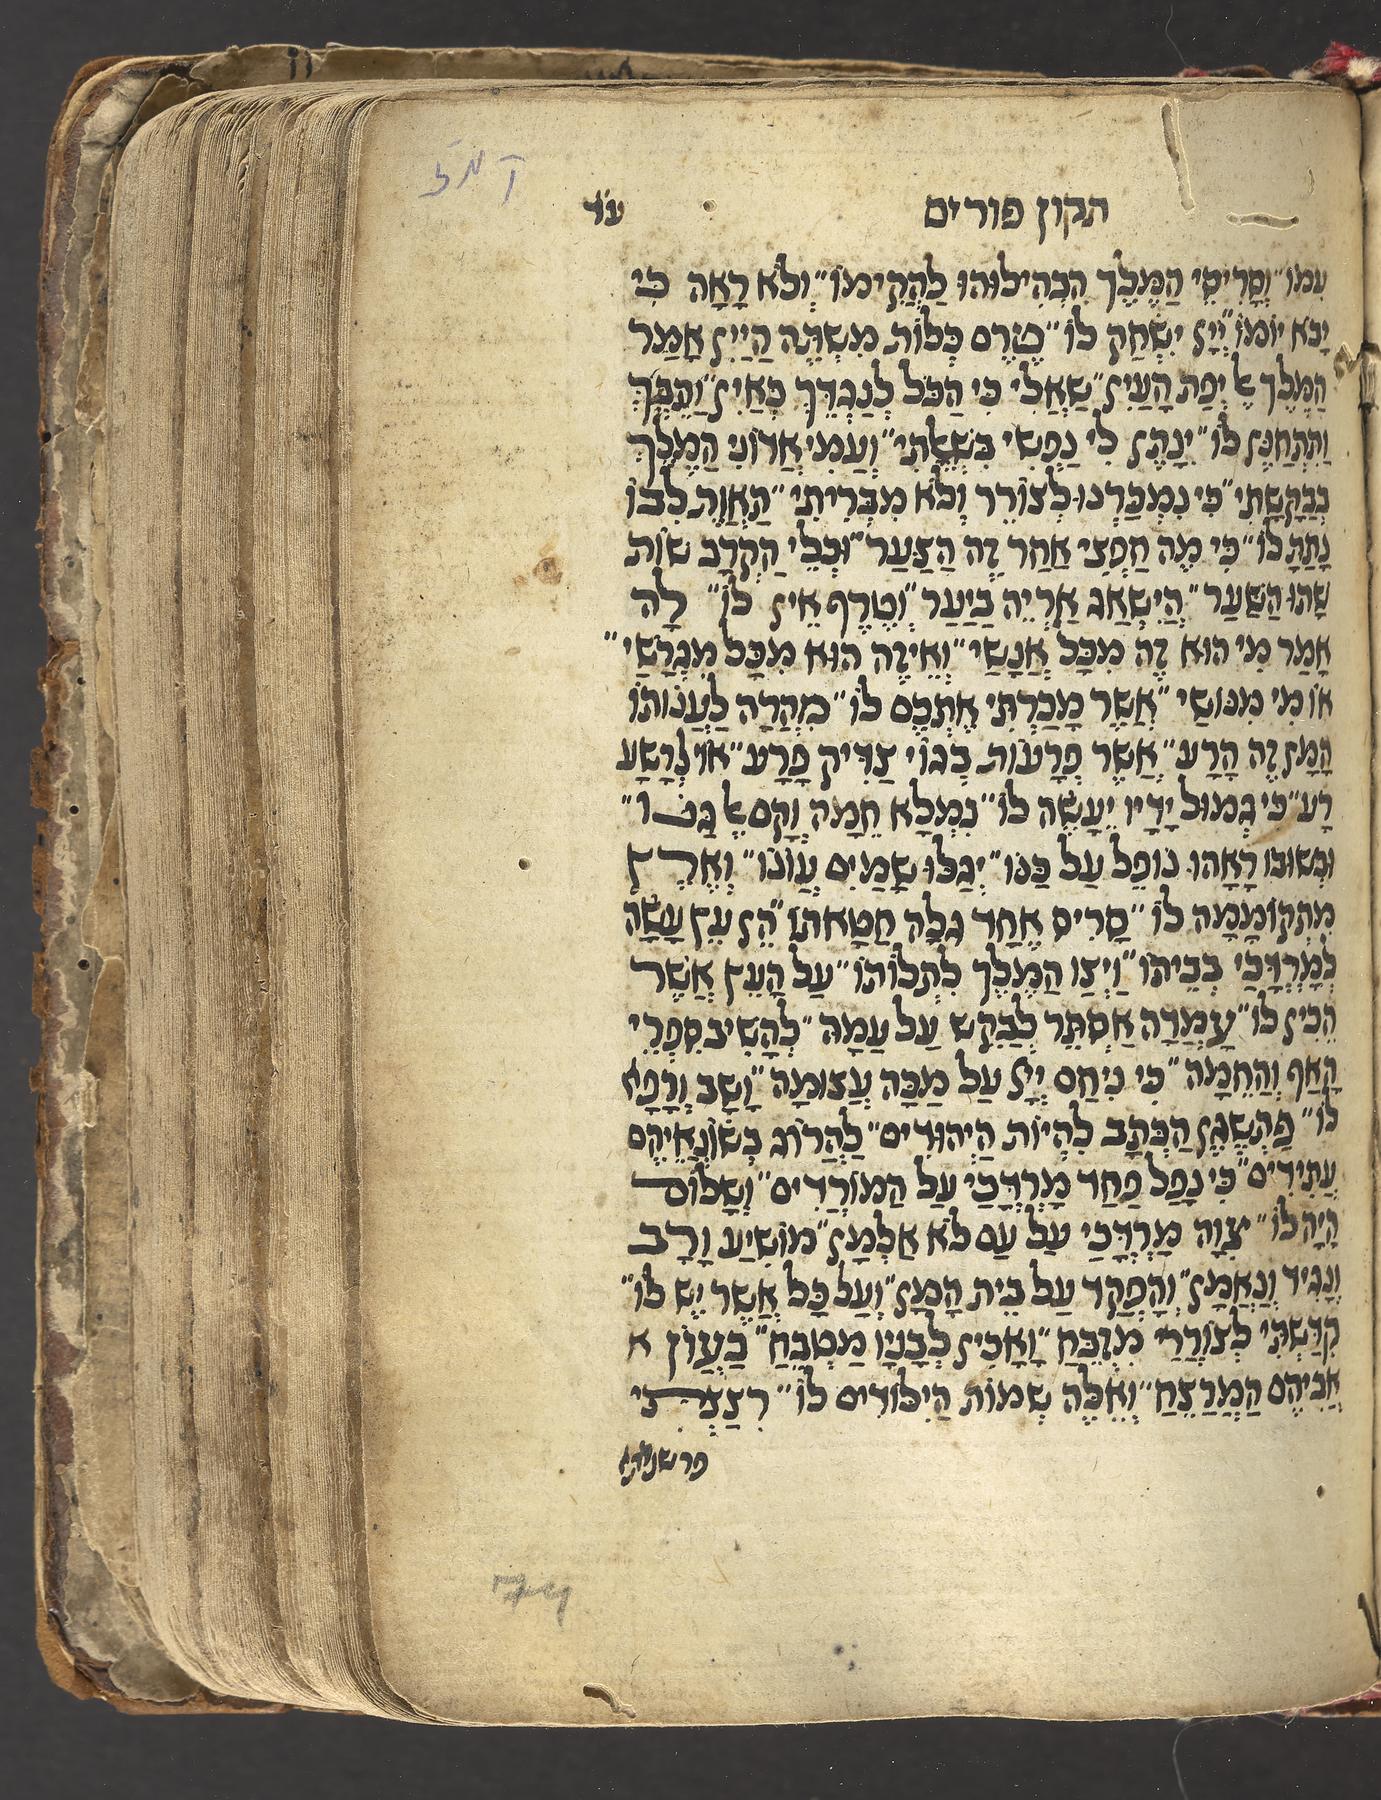 קמז
תקון פורים עד
עִמוֹ״ וְסָרִיסֵי הַמֶּלֶךְ הִבְהִילוּהוּ לַהֲקִימוֹ״ וְלֹא רָאָה כִּי
יָבֹא יוֹמוֹ״ וְיָ״י יִשְׂחַק לוֹ״ טֶרֶם כְּלוֹת מִשְׁתֵּה הַיַּיִן אָמַר
הַמֶּלֶךְ אֶל יְפַת הָעַיִן״ שַׁאֲלִי כִּי הַכֹּל לְנֶגְדֵּךְ כְּאַיִן״ וַתֵּבְךְּ
וַתִּתְחַנֶּן לוֹ״ יִנָּתֶן לִי נַפְשִׁי בִּשְׁאֵלָתִי״ וְעַמִּי אֲדוֹנִי הַמֶּלֶךְ
בְּבַקָּשָׁתִי״ כִּי נִמְכַּרְנוּ לְצוֹרֵר וְלֹא מִבְּרִיתִי״ תַּאֲוַת לִבּוֹ
נָתַתָּ לוֹ״ כִּי מֶה חֶפְצִי אַחַר זֶה הַצַּעַר״ וּכְלֵי הַקְּרָב שׁוֹת
שָׁתוּ הַשַּׁעַר״ הֲיִשְׁאַג אַרְיֵה בַּיַּעַר״ וְטֶרֶף אֵין לוֹ״ לָהּ
אָמַר מִי הוּא זֶה מִכָּל אֲנָשַׁי״ וְאֵיזֶה הוּא מִכָּל מִגְרָשַׁי״
אוֹ מִי מִנּוֹשַׁי״ אֲשֶׁר מָכַרְתִּי אֶתְכֶם לוֹ״ מִהֲרָה לַעֲנוֹתוֹ
הָמָן זֶה הָרַע״ אֲשֶׁר פְּרָעוֹת בְּגוֹי צַדִּיק פָּרַע״ אוֹי לְרָשָׁע
רָע״ כִּי גְמוּל יָדָיו יֵעָשֶׂה לוֹ״ נִמְלָא חֵמָה וָקָם אֶל גַּנּוֹ״
וּבְשׁוּבוֹ רָאָהוּ נוֹפֵל עַל כַּנּוֹ״ יְגַלּוּ שָׁמַיִם עֲוֹנוֹ״ וְאֶרֶץ
מִתְקוֹמָמָה לוֹ״ סָרִיס אֶחָד גִּלָּה חַטָּאתוֹ״ הֵן עֵץ עָשָׂה
לְמָרְדֳּכַי בְּבֵיתוֹ״ וַיְצַו הַמֶּלֶךְ לִתְלוֹתוֹ״ עַל הָעֵץ אֲשֶׁר
הֵכִין לוֹ״ עָמְדָה אֶסְתֵּר לְבַקֵּשׁ עַל עַמָּהּ״ לְהָשִׁיב סִפְרֵי
הָאַף וְהַחֵמָה״ כִּי נִיחַם יְ״יָ עַל מַכָּה עֲצוּמָה״ וָשָׁב וְרָפָא
לוֹ״ פַּתְשֶׁגֶן הַכְּתָב לִהְיוֹת הַיְהוּדִים״ לַהֲרוֹג בְּשׂוֹנְאֵיהֶם
עֲתִידִים״ כִּי נָפַל פַּחַד מָרְדֳּכַי עַל הַמּוֹרְדִים״ וְשָׁלוֹם
הָיָה לוֹ״ יִצְוָה מָרְדֳּכַי עַל עַם לֹא אַלְמָן״ מוֹשִׁיעַ וָרָב
וְנָגִיד וְנֶאֱמָן״ וְהָפְקַד עַל בֵּית הָמָן״ וְעַל כָּל אֲשֶׁר יֶשׁ לוֹ״
קִדַּשְׁתִּי לְצוֹרְרַי מִזְבֵּחַ״ וְאָכִין לְבָנָיו מַטְבֵּחַ״ בַּעֲוֹן א
אֲבִיהֶם הַמְרַצֵּחַ״ וְאֵלֶּה שְׁמוֹת הַיִּלּוֹדִים לוֹ״ רִצַצְתִּי
פרשנדתא
74